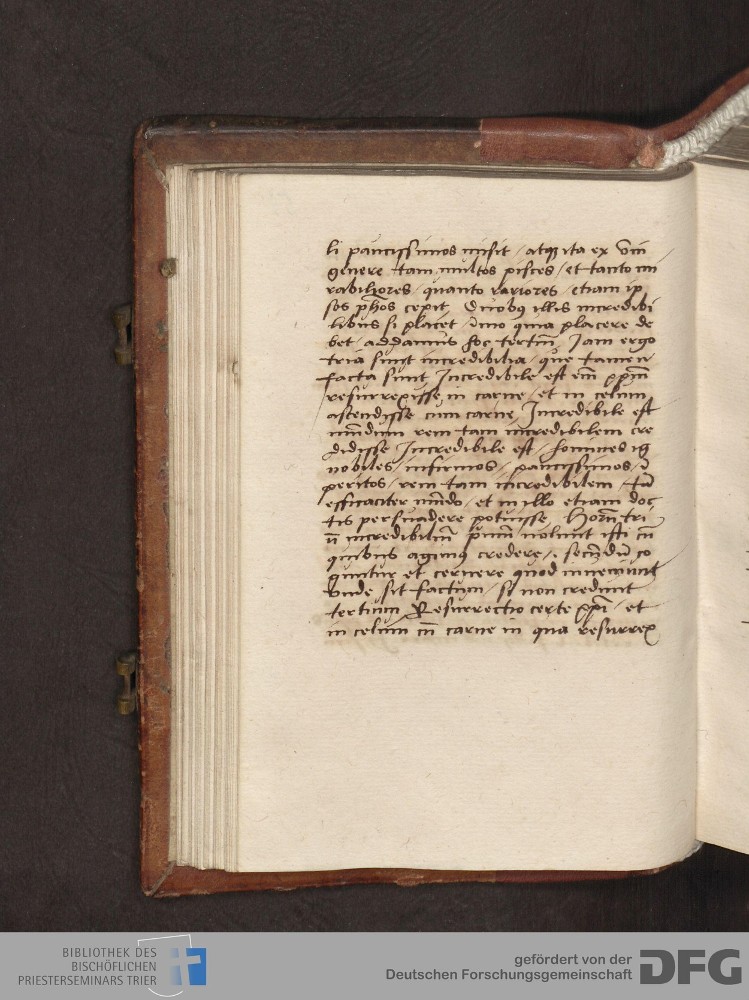 li paucissimos misit / atq3 ita ex om̄i
genere tam multos pisces / et tanto mi
rabiliores / quanto rariores / etiam ip
sos ph̄os cepit / Duobus illis incredibi
libus si placet / imo quia placere de
bet / addamus hoc tertiū / Jam ergo
tria sunt incredibilia / que tamen
facta sunt / Incredibile est em̄ xp̄m
resurrexisse in carne / et in celum
ascendisse cum carne / Incredibile est
mūdum rem tam incredibilem cre
didisse / Incredibile est / homines ig
nobiles / infirmos / paucissimos / ī
peritos / rem tam incredibilem / tā
efficaciter mūdo / et in illo etiam doc
tis persuadere potuisse / Horū tri
ū incredibiliū primū nolunt isti cū
quibus agimus credere / secūdū co
guntur et cernere quod inueniunt
unde sit factum / si non credunt
tertium / Resurrectio certe xp̄i / et
in celum cū carne in qua resurrex
BIBLIOTHEK DES
BISCHÖFLICHEN
PRIESTERSEMINARS TRIER
gefördert von der
Deutschen Forschungsgemeinschaft
DFG